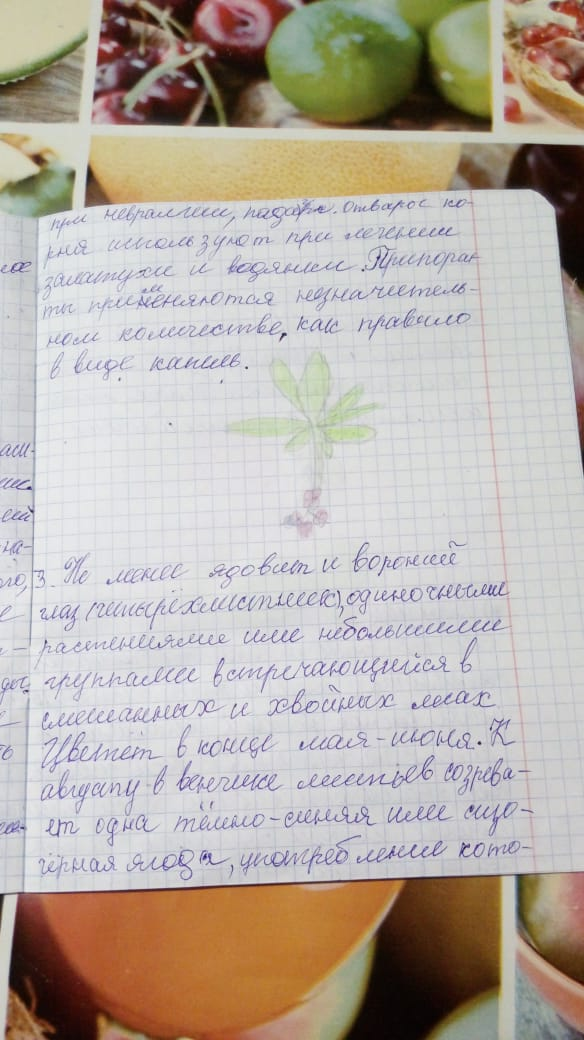 при невралгии, подагре. Отваром ко-
рня используют при лечении
золотухи и водянки. Припора-
ты применяются незначитель-
ном количестве, как правило
в виде капель.
3. Не менее ядовит и вороний
глаз (четырёхлистник), одиночными
растениями или небольшими
группами встречающийся в
смешанных и хвойных лесах
Цветёт в конце мая-июня. К
августу в венчике листьев созрева-
ет одна тёмно-синяя или сизо-
чёрная ягода, употребление кото-